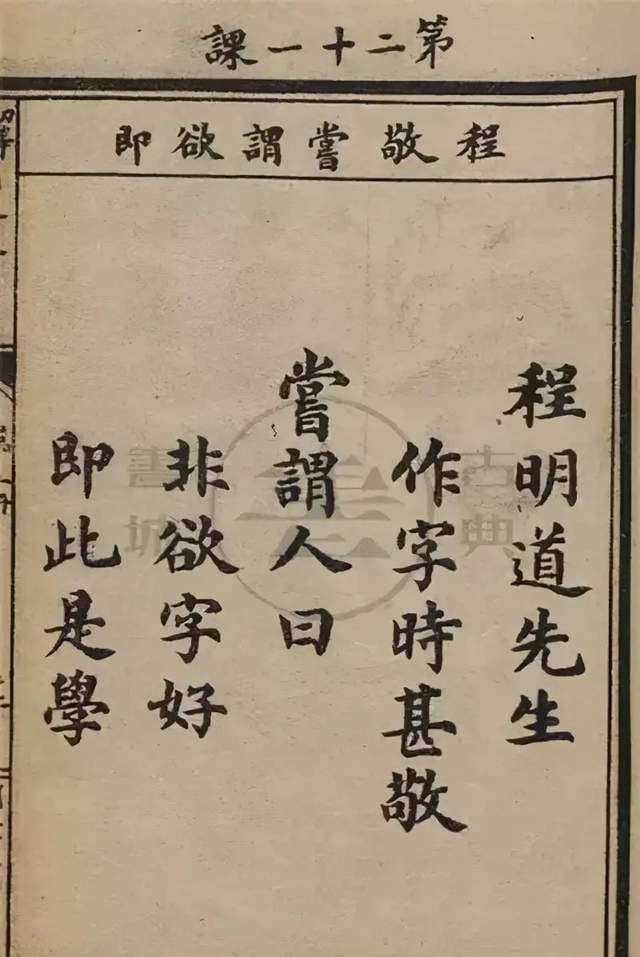 第二十一課
程敬嘗謂欲即
程明道先生
作字時甚敬
嘗謂人曰
非欲字好
即此是學
古典
書城